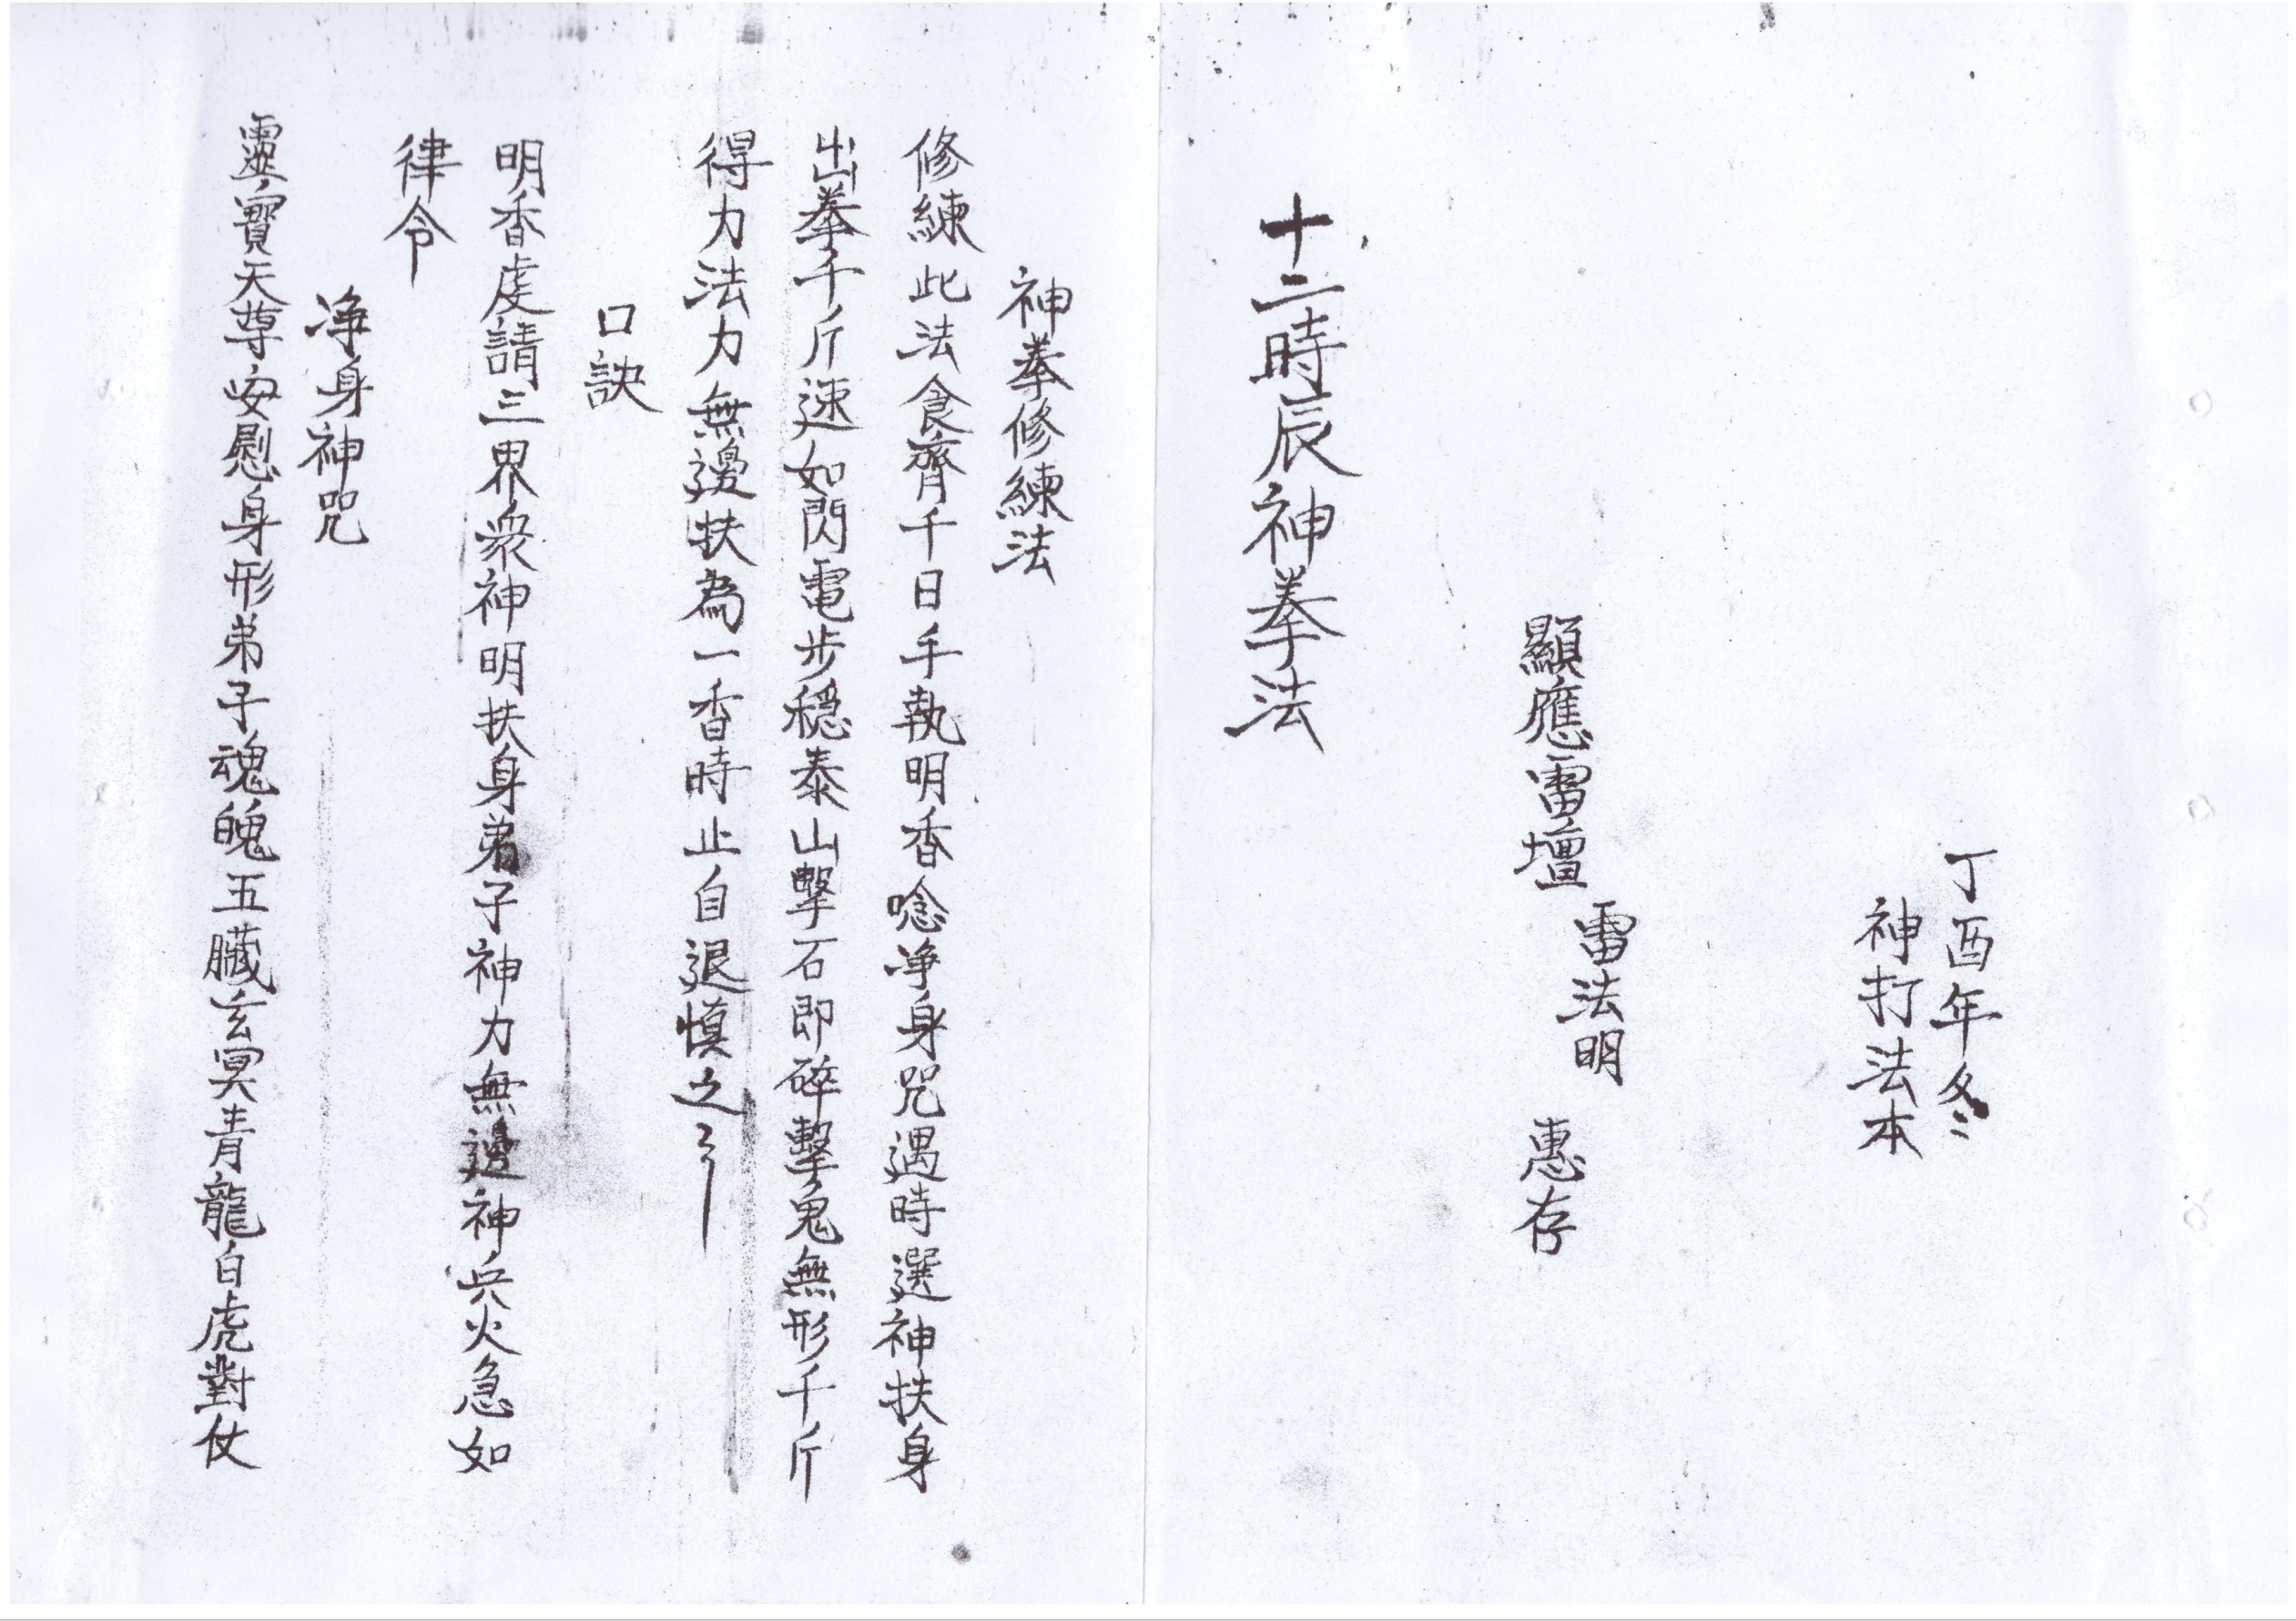 丁酉年冬
神打法本
雷法明
顯應雷壇 惠存
十二時辰神拳法
神拳修練法
修練此法食齊千日手執明香唸净身咒遇時選神扶身
出拳千斤速如閃電步穩泰山擊石即碎擊鬼無形千斤
得力法力無邊扶為一香時止自退慎之〻
口訣
明香虔請三界衆神明扶身弟子神力無邊神兵火急如
律令
净身神咒
靈寶天尊安慰身形弟子魂魄五臟玄冥青龍白虎對仗